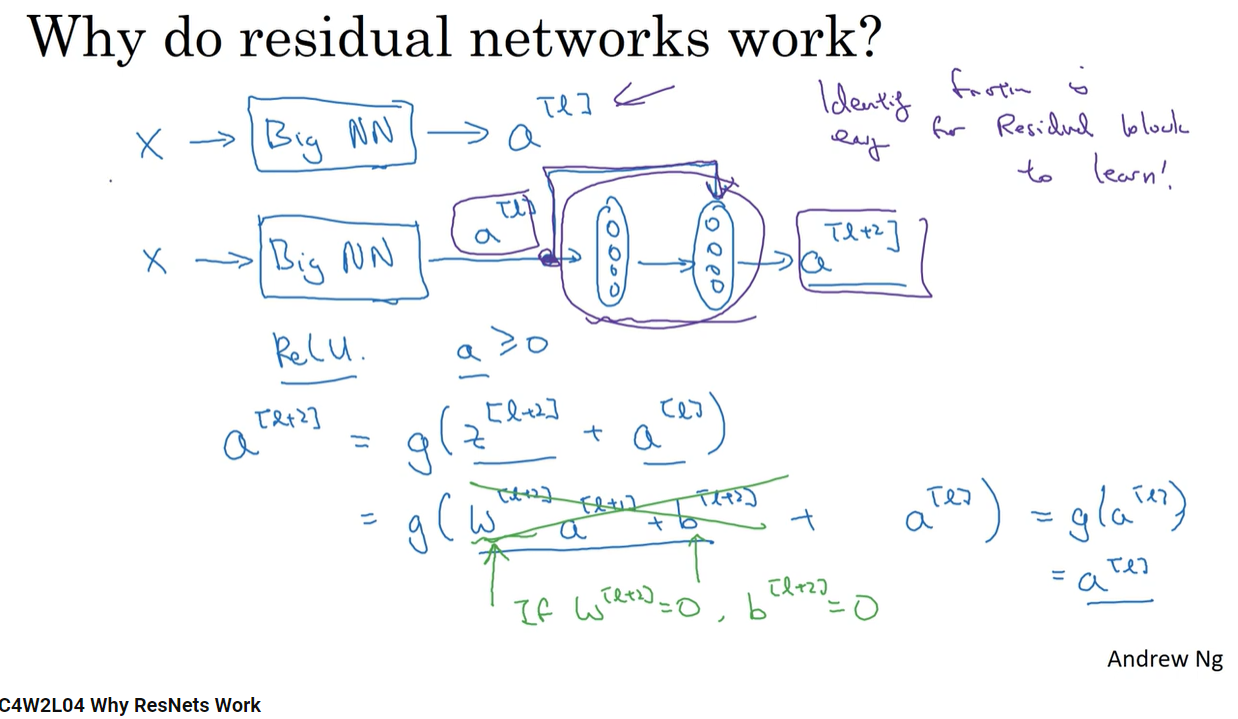 Why do residual networks work?
X → Big NN → a^[l] ←
Identity function is
easy for Residual block
to learn!
X → Big NN a^[l] → → → a^[l+2]
ReLU. a ≥ 0
a^[l+2] = g(z^[l+2] + a^[l])
= g(W^[l+2] a^[l+1] + b^[l+2] + a^[l]) = g(a^[l])
= a^[l]
If W^[l+2] = 0, b^[l+2] = 0
Andrew Ng
C4W2L04 Why ResNets Work